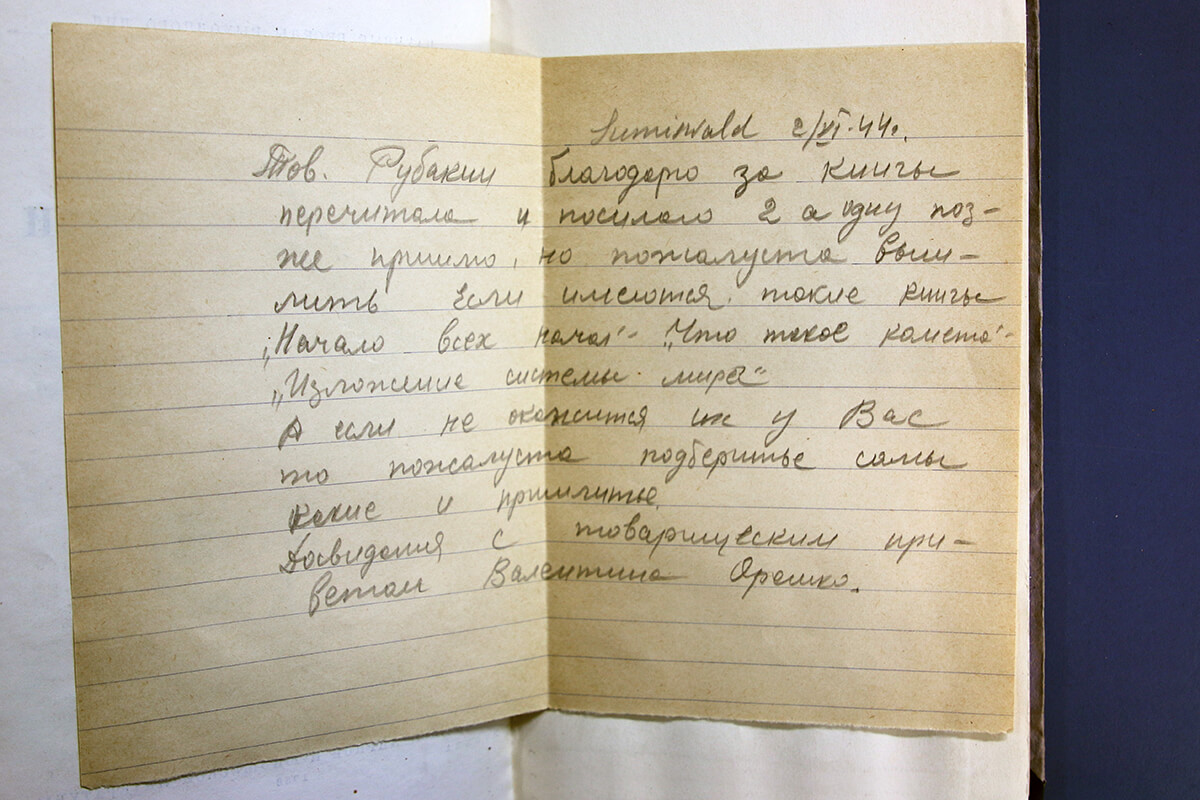 Sumiswald 2/VI-44г.
Тов. Рубакин благодорю за книгы
перечитала и посилаю 2 а одну поз-
же пришлю, но пожалуста выш-
лить если имеются такие книгы
„Начало всех начал"- „Что такое комета"-
„Изложение системы мира"
А если не окажится их у Вас
то пожалуста подберитье самы
какие и пришлитье.
Досвидания с товарищеским при-
ветом Валентина Орешко.